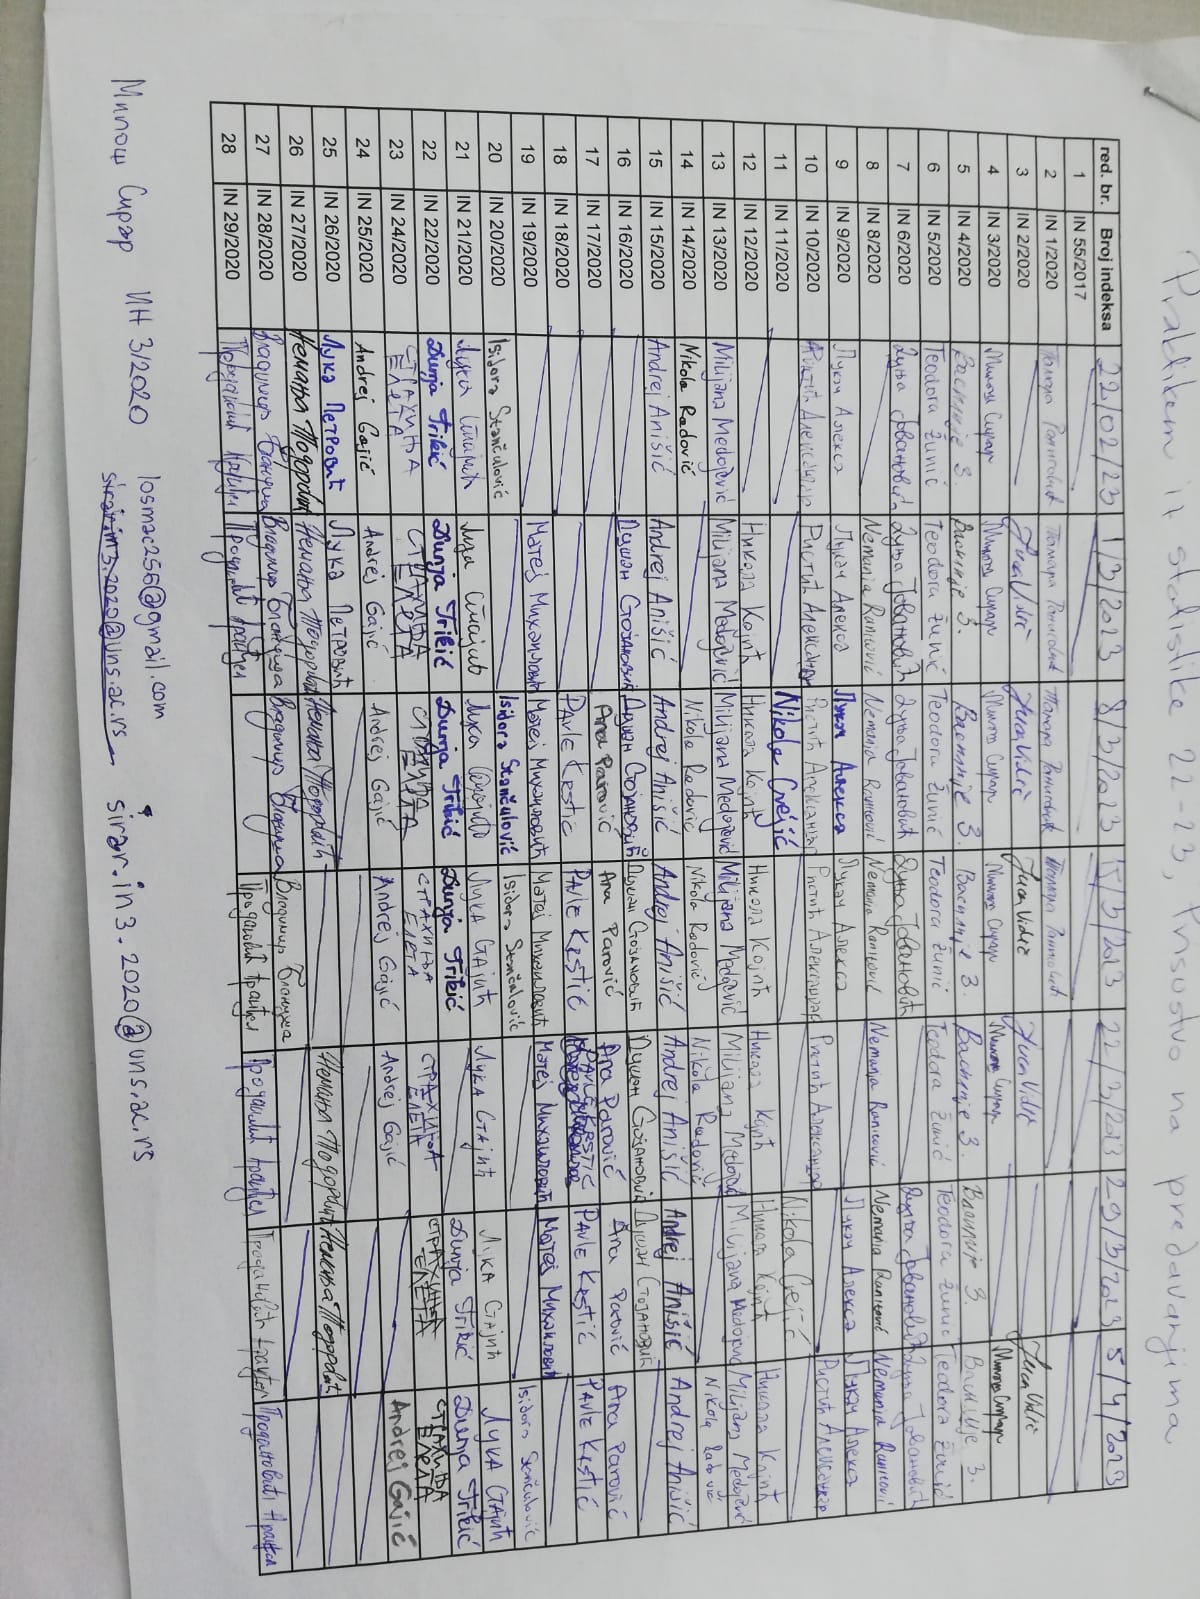 Praktikum iz statistike 22-23, Prisustvo na predavanjima
red. br. Broj indeksa 22/02/23 1/3/2023 8/3/2023 15/3/2023 22/3/2023 29/3/2023 5/4/2023
1 IN 55/2017
2 IN 1/2020 Тамара Ранисовић Тамара Ранисовић Тамара Ранисовић Тамара Ранисовић
3 IN 2/2020 Juca Vidić Juca Vidić Juca Vidić Juca Vidić Juca Vidić
4 IN 3/2020 Милош Сирар Милош Сирар Милош Сирар Милош Сирар Милош Сирар Милош Сирар
5 IN 4/2020 Василије З. Василије З. Василије З. Василије З. Василије З. Василије З. Василије З.
6 IN 5/2020 Teodora Žunić Teodora Žunić Teodora Žunić Teodora Žunić Teodora Žunić Teodora Žunić Teodora Žunić
7 IN 6/2020 Дуња Јовановић Дуња Јовановић Дуња Јовановић Дуња Јовановић Дуња Јовановић Дуња Јовановић
8 IN 8/2020 Nemanja Ranitović Nemanja Ranitović Nemanja Ranitović Nemanja Ranitović Nemanja Ranitović Nemanja Ranitović
9 IN 9/2020 Лукач Алекса Лукач Алекса Лукач Алекса Лукач Алекса Лукач Алекса Лукач Алекса
10 IN 10/2020 Ристић Александар Ристић Александар Ристић Александар Ристић Александар Ристић Александар Ристић Александар
11 IN 11/2020 Nikola Cvejić Nikola Cvejić
12 IN 12/2020 Никола Којић Никола Којић Никола Којић Никола Којић Никола Којић Никола Којић
13 IN 13/2020 Milijana Medojević Milijana Medojević Milijana Medojević Milijana Medojević Milijana Medojević Milijana Medojević Milijana Medojević
14 IN 14/2020 Nikola Radović Nikola Radović Nikola Radović Nikola Radović Nikola Radović
15 IN 15/2020 Andrej Anišić Andrej Anišić Andrej Anišić Andrej Anišić Andrej Anišić Andrej Anišić Andrej Anišić
16 IN 16/2020 Душан Стојановић Душан Стојановић Душан Стојановић Душан Стојановић Душан Стојановић
17 IN 17/2020 Ana Parović Ana Parović Ana Parović Ana Parović Ana Parović
18 IN 18/2020 PAVLE KRSTIĆ PAVLE KRSTIĆ PAVLE KRSTIĆ PAVLE KRSTIĆ PAVLE KRSTIĆ
19 IN 19/2020 Матеј Михаиловић Матеј Михаиловић Матеј Михаиловић Матеј Михаиловић Матеј Михаиловић
20 IN 20/2020 Isidora Stančulović Isidora Stančulović Isidora Stančulović Isidora Stančulović
21 IN 21/2020 Лука Стајић Лука Стајић Лука Стајић Лука Стајић Лука Стајић Лука Стајић Лука Стајић
22 IN 22/2020 Dunja Trikić Dunja Trikić Dunja Trikić Dunja Trikić Dunja Trikić Dunja Trikić
23 IN 24/2020 СТРАХИЊА ЕЛЕТА СТРАХИЊА ЕЛЕТА СТРАХИЊА ЕЛЕТА СТРАХИЊА ЕЛЕТА СТРАХИЊА ЕЛЕТА СТРАХИЊА ЕЛЕТА СТРАХИЊА ЕЛЕТА
24 IN 25/2020 Andrej Gajić Andrej Gajić Andrej Gajić Andrej Gajić Andrej Gajić Andrej Gajić
25 IN 26/2020 Лука Петровић Лука Петровић
26 IN 27/2020 Немања Тодоровић Немања Тодоровић Немања Тодоровић Немања Тодоровић Немања Тодоровић
27 IN 28/2020 Владимир Блануша Владимир Блануша Владимир Блануша Владимир Блануша
28 IN 29/2020 Продановић Аранђел Продановић Аранђел Продановић Аранђел Продановић Аранђел Продановић Аранђел Продановић Аранђел
Милош Сирар ИН 3/2020 losmac256@gmail.com
sirar.in3.2020@uns.ac.rs sirar.in3.2020@uns.ac.rs